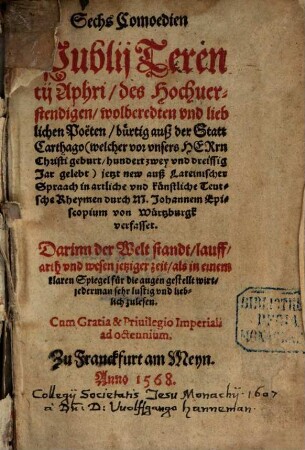 Sechs Comoedien
Publij Teren
tij Aphri / des Hochuer-
stendigen / wolberedten vnd lieb
lichen Poëten / bürtig auß der Statt
Carthago (welcher vor vnsers HERrn
Christi geburt / hundert zwey vnd dreissig
Jar gelebt) jetzt new auß Lateinischer
Spraach in artliche vnd künstliche Teut-
sche Rheymen durch M. Johannem Epi-
scopium von Würtzburgk
verfasset.
Darinn der Welt standt / lauff /
arth vnd wesen jetziger zeit / als in einem
klaren Spiegel für die augen gestellt wirt /
jederman sehr lustig vnd lieb-
lich zulesen.
Cum Gratia & Priuilegio Imperiali
ad octennium.
BIBLIOTHECA
REGIA
MONACENSIS
Zu Franckfurt am Meyn.
Anno 1568.
Collegij Societatis Jesu Monachij. 1607
Wolffgango Hanneman.